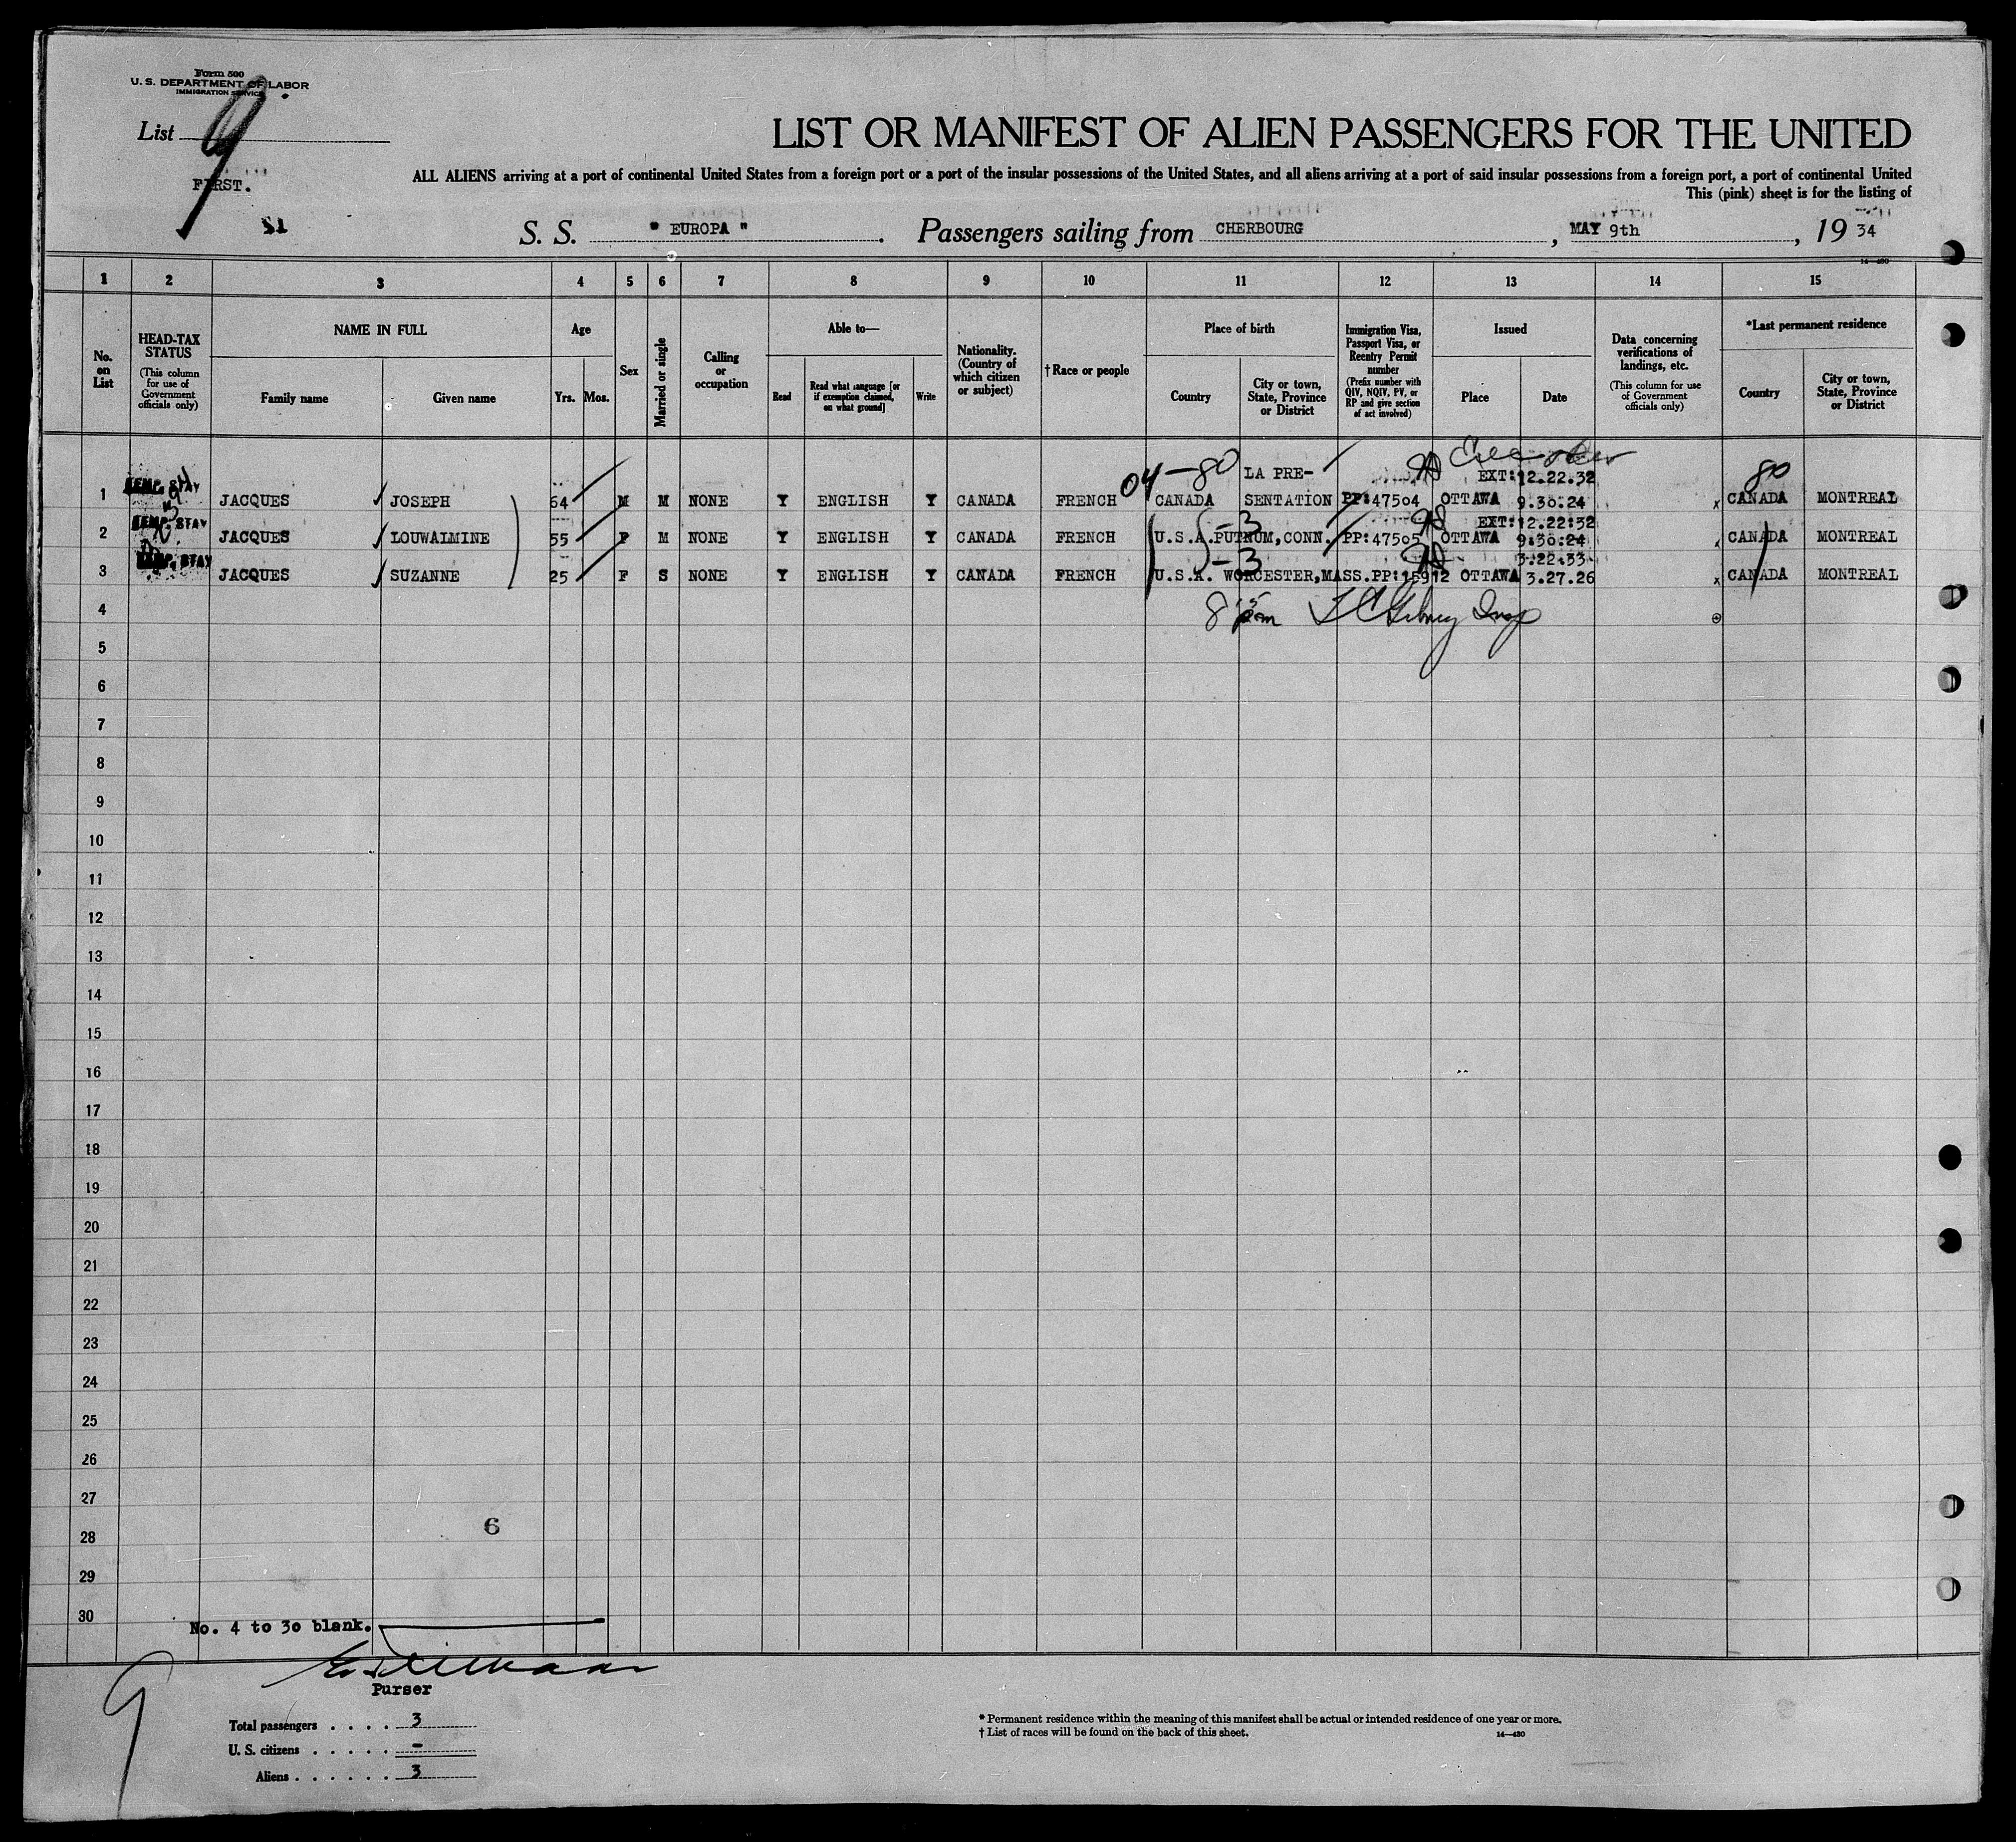 Form 500
U. S. DEPARTMENT OF LABOR
IMMIGRATION SERVICE
List 9
FIRST.
LIST OR MANIFEST OF ALIEN PASSENGERS FOR THE UNITED
ALL ALIENS arriving at a port of continental United States from a foreign port or a port of the insular possessions of the United States, and all aliens arriving at a port of said insular possessions from a foreign port, a port of continental United
This (pink) sheet is for the listing of
S. S. " EUROPA ". Passengers sailing from CHERBOURG, MAY 9th, 19 34
14—430
1 2 3 4 5 6 7 8 9 10 11 12 13 14 15
No. on List
HEAD-TAX STATUS (This column for use of Government officials only)
NAME IN FULL
Family name Given name
Age
Yrs. Mos.
Sex
Married or single
Calling or occupation
Able to—
Read Read what language [or if exemption claimed, on what ground] Write
Nationality. (Country of which citizen or subject)
† Race or people
Place of birth
Country City or town, State, Province or District
Immigration Visa, Passport Visa, or Reentry Permit number (Prefix number with QIV, NQIV, PV, or RP and give section of act involved)
Issued
Place Date
Data concerning verifications of landings, etc. (This column for use of Government officials only)
*Last permanent residence
Country City or town, State, Province or District
04-80 LA PRE- 98 EXT:12.22.32 80
1 TEMP. STAY JACQUES JOSEPH 64 M M NONE Y ENGLISH Y CANADA FRENCH CANADA SENTATION PP:47504 OTTAWA 9.30.24 x CANADA MONTREAL
-3 98 EXT:12.22:32
2 TEMP. STAY JACQUES LOUWALMINE 55 F M NONE Y ENGLISH Y CANADA FRENCH U.S.A. PUTNUM, CONN. PP:47505 OTTAWA 9:30:24 x CANADA MONTREAL
-3 98 3.22.33
3 TEMP. STAY JACQUES SUZANNE 25 F S NONE Y ENGLISH Y CANADA FRENCH U.S.A. WORCESTER, MASS. PP:15912 OTTAWA 3.27.26 x CANADA MONTREAL
4 8 pm Insp
5
6
7
8
9
10
11
12
13
14
15
16
17
18
19
20
21
22
23
24
25
26
27
6
28
29
30
No. 4 to 30 blank.
Purser
9
Total passengers . . . . 3
U. S. citizens . . . . . -
Aliens . . . . . . 3
* Permanent residence within the meaning of this manifest shall be actual or intended residence of one year or more.
† List of races will be found on the back of this sheet.
14—430